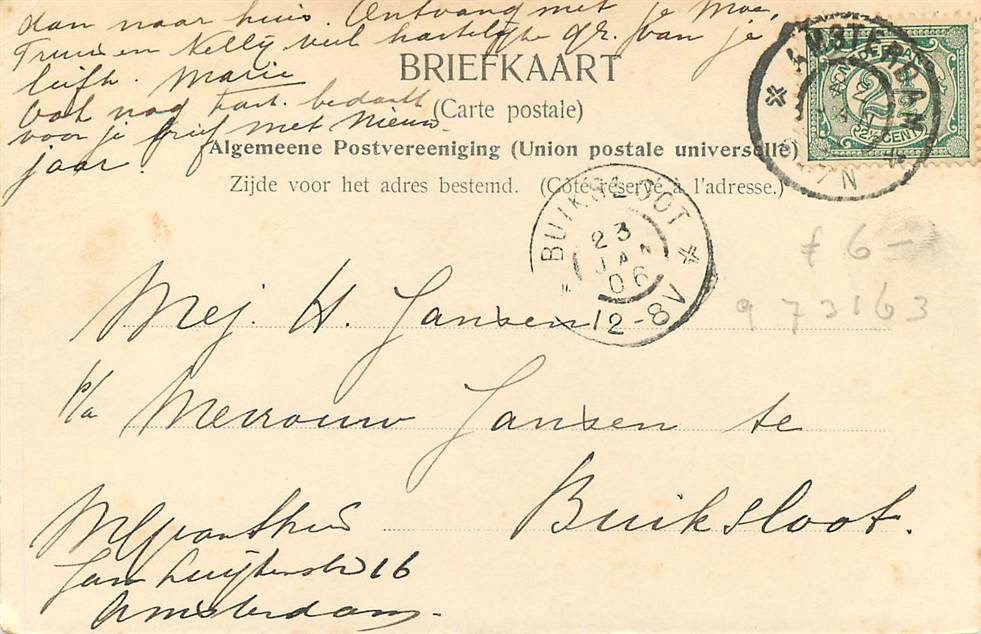 dan naar huis. Ontvang met je Moe,
Truus en Nelly veel hartelijke gr. van je
liefh. Marie
BRIEFKAART
(Carte postale)
ook nog hart. bedankt
voor je brief met Nieuw-
jaar.
Algemeene Postvereeniging (Union postale universelle)
Zijde voor het adres bestemd. (Côté réservé à l'adresse.)
AMSTERDAM
2½ CENT
BUIKSLOOT
23
JAN
06
12-8V
f 6-
973163
Mej. H. Jansen
p/a Mevrouw Jansen te
Buiksloot.
Jan Luijkenstr 16
Amsterdam.